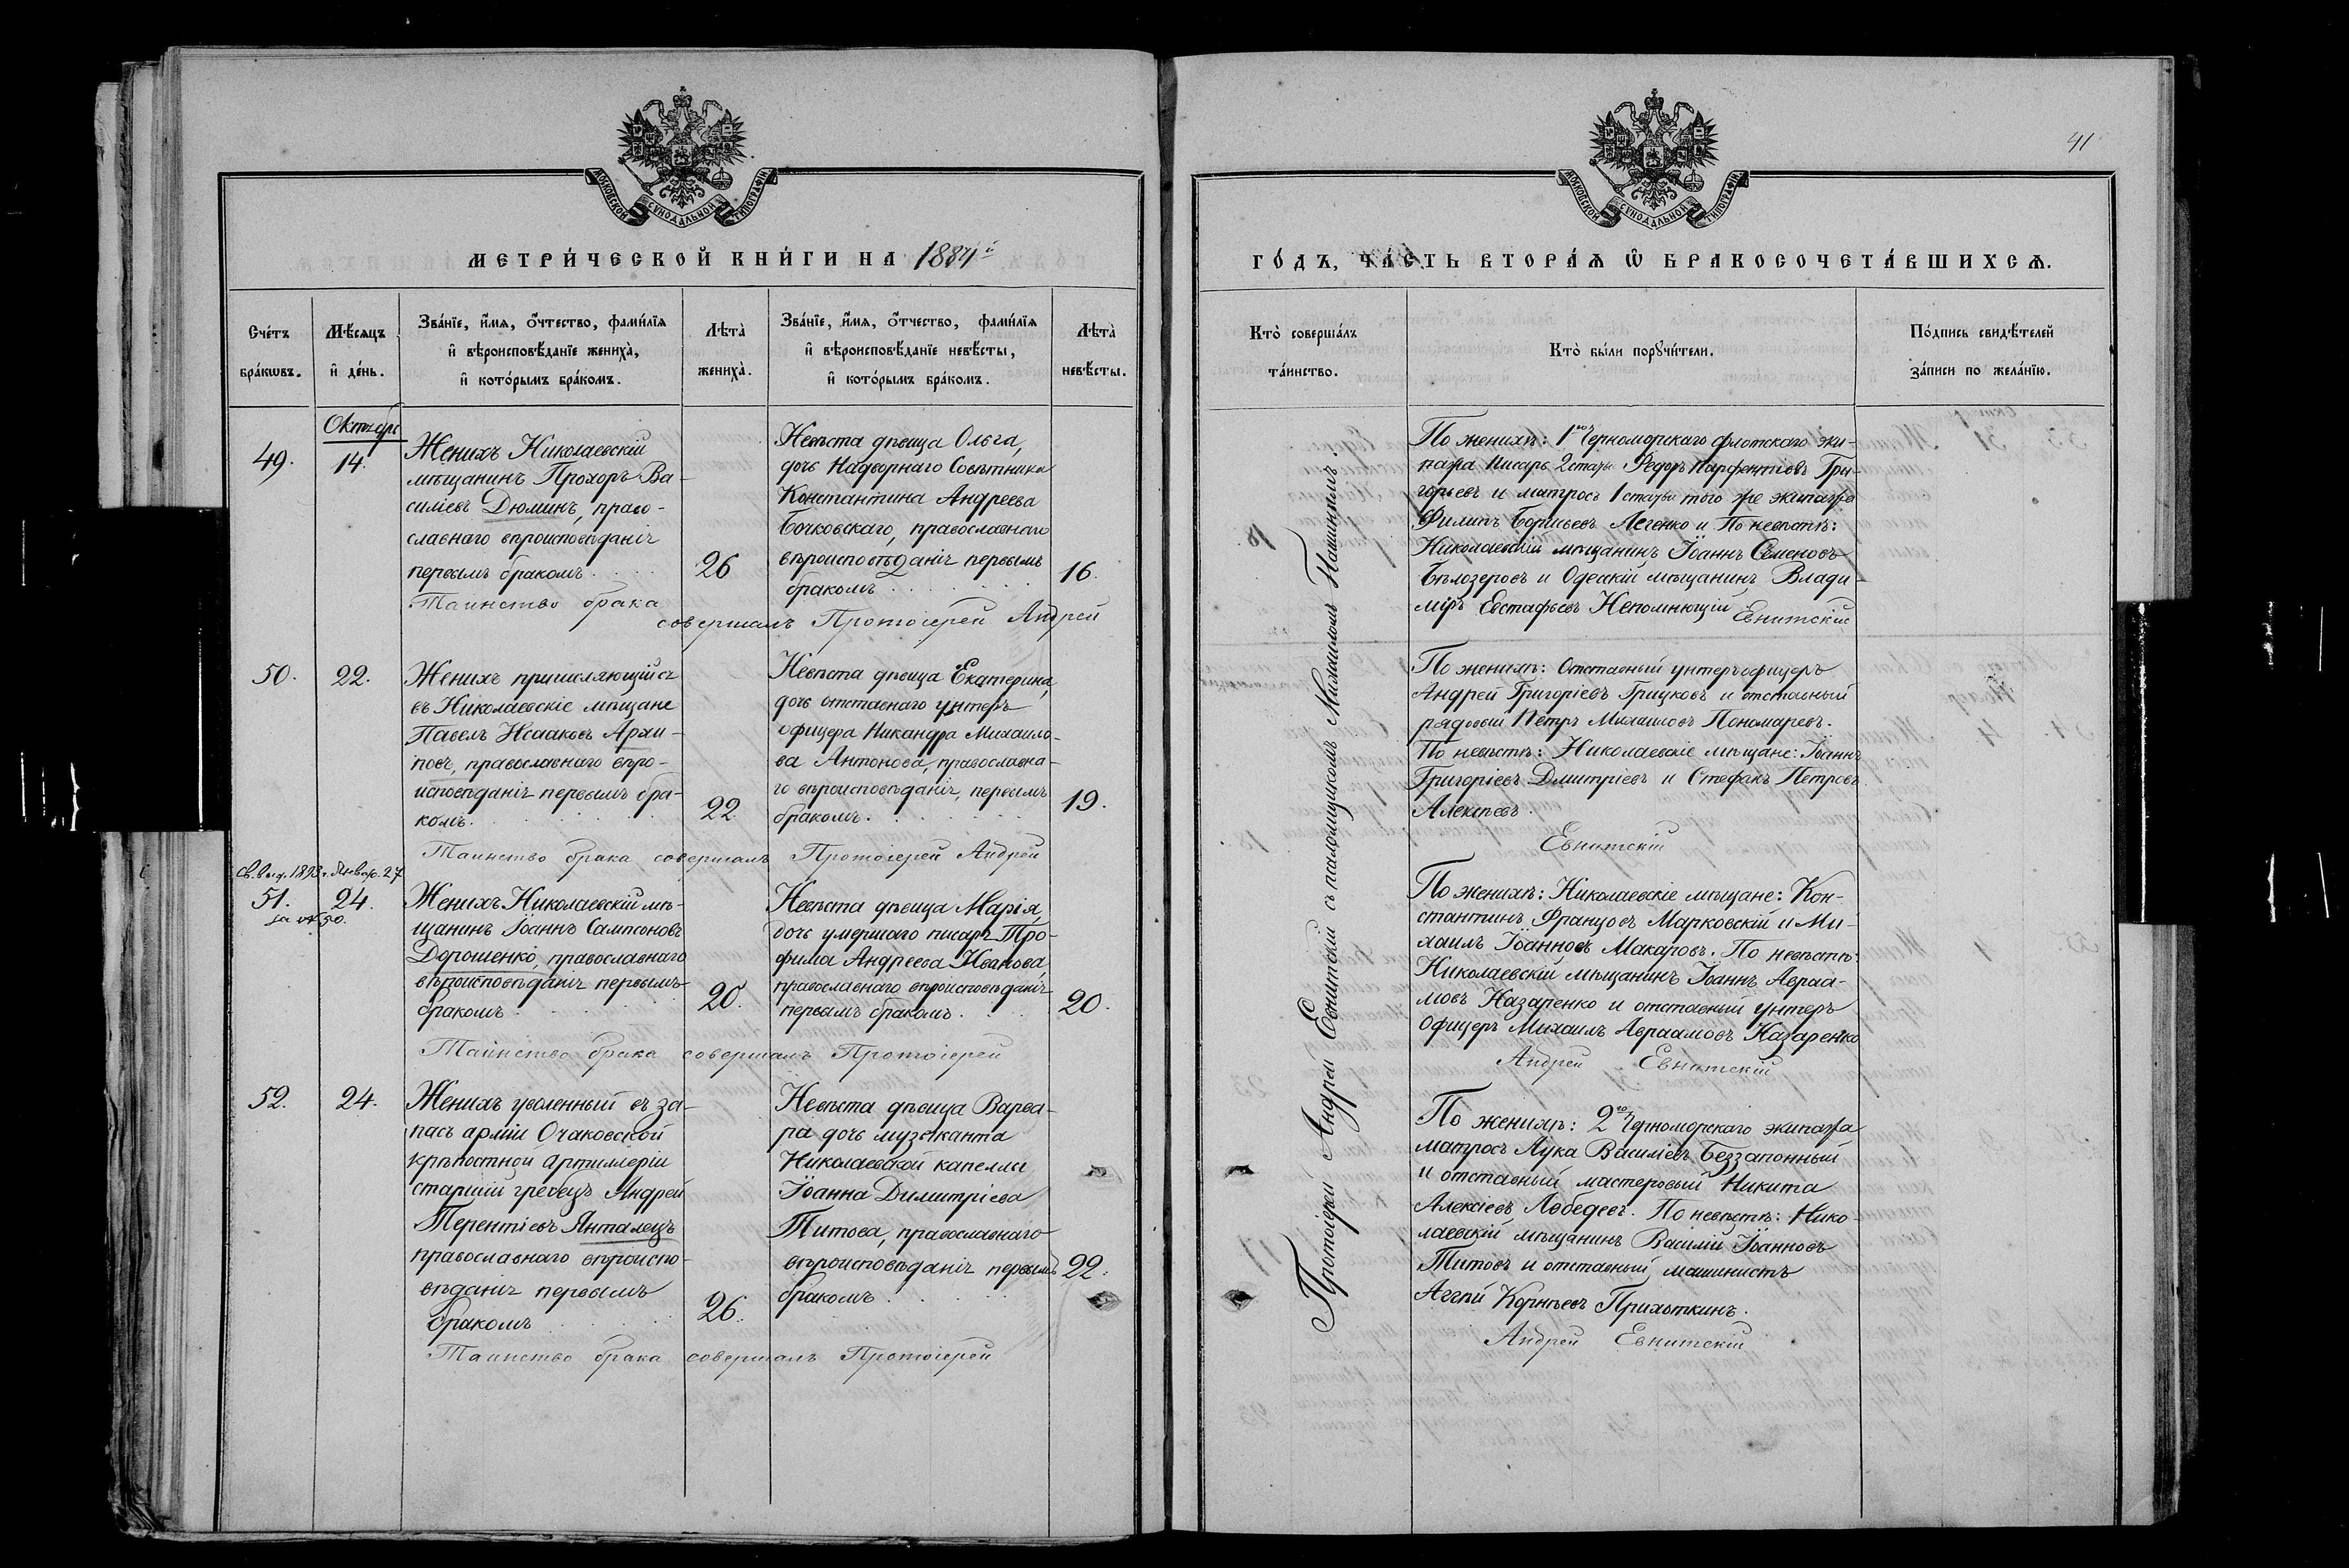 МОСКОВСКОЙ СѴНОДАЛЬНОЙ ТИПОГРАФІИ
МЕТРИ́ЧЕСКОЙ КНИ́ГИ НА 1884й
Сче́тъ бра́кѡвъ.
Мѣ́сяцъ и҆ де́нь.
Зва́нїе, и҆́мѧ, ѻ҆́тчество, фамилїѧ
и҆ вѣроисповѣ́данїе жениха̀,
и҆ кото́рымъ бра́комъ.
Лѣта̀ жениха̀.
Зва́нїе, и҆́мѧ, ѻ҆́тчество, фамилїѧ
и҆ вѣроисповѣ́данїе невѣ́сты,
и҆ кото́рымъ бра́комъ.
Лѣта̀ невѣ́сты.
Октябрь
49.
14.
Женихъ Николаевскій
мѣщанинъ Прохоръ Ва-
силіевъ Дюминъ, право-
славнаго вѣроисповѣданія
первымъ бракомъ.
26
Невѣста дѣвица Ольга,
дочь Надворнаго Совѣтника
Константина Андреева
Бочковскаго, православнаго
вѣроисповѣданія первымъ
бракомъ
16.
Таинство брака
совершалъ Протоіерей Андрей
50.
22.
Женихъ причисляющійся
въ Николаевскіе мѣщане
Павелъ Исааковъ Архи-
повъ, православнаго вѣро-
исповѣданія первымъ бра-
комъ.
22.
Невѣста дѣвица Екатерина,
дочь отставнаго унтеръ
офицера Никандра Михаило-
ва Антонова, православна-
го вѣроисповѣданія, первымъ
бракомъ.
19.
Таинство брака совершалъ Протоіерей Андрей
Св. выд. 1893 г. Январ. 27
51.
за № 50.
24.
Женихъ Николаевскій мѣ-
щанинъ Іоаннъ Сампсоновъ
Дорошенко, православнаго
вѣроисповѣданія первымъ
бракомъ
20.
Невѣста дѣвица Марія,
дочь умершаго писаря Тро-
фима Андреева Иванова,
православнаго вѣроисповѣданія
первымъ бракомъ.
20.
Таинство брака совершалъ Протоіерей
52.
24.
Женихъ уволенный въ за-
пасъ арміи Очаковской
крѣпостной артиллеріи
старшій гребецъ Андрей
Терентіевъ Янталецъ
православнаго вѣроиспо-
вѣданія первымъ
бракомъ
26.
Невѣста дѣвица Варва-
ра дочь музыканта
Николаевской капеллы
Іоанна Димитріева
Титова, православнаго
вѣроисповѣданія первымъ
бракомъ
22.
Таинство брака совершалъ Протоіерей
41
МОСКОВСКОЙ СѴНОДАЛЬНОЙ ТИПОГРАФІИ
ГО́ДЪ, ЧА́СТЬ ВТОРА́Ѧ Ѡ҆ БРАКОСОЧЕТА́ВШИХСѦ.
Кто̀ соверша́лъ та́инство.
Кто̀ бы́ли порꙋчи́тели.
По́дпись свидѣ́телей за́писи по жела́нїю.
Протоіерей Андрей Евнитскій съ псаломщикомъ Михаиломъ
По женихѣ: 1го Черноморскаго флотскаго эки-
пажа писарь 2 статьи Федоръ Парфентіевъ Гри-
горьевъ и матросъ 1 статьи того же экипажа
Филипъ Борисьевъ Легенко и По невѣстѣ:
Николаевскій мѣщанинъ Іоаннъ Семеновъ
Бѣлозеровъ и Одесскій мѣщанинъ Влади-
міръ Евстафьевъ Непомнющій
Евнитскій
По женихѣ: Отставный унтеръ офицеръ
Андрей Григоріевъ Грицковъ и отставный
рядовый Петръ Михаиловъ Пономаревъ.
По невѣстѣ: Николаевскіе мѣщане: Іоаннъ
Григоріевъ Димитріевъ и Стефанъ Петровъ
Алексѣевъ.
Евнитскій
По женихѣ: Николаевскіе мѣщане: Кон-
стантинъ Францовъ Марковскій и Ми-
хаилъ Іоанновъ Макаровъ. По невѣстѣ:
Николаевскій мѣщанинъ Іоаннъ Авраа-
мовъ Назаренко и отставный унтеръ
офицеръ Михаилъ Авраамовъ Назаренко
Андрей Евнитскій
По женихѣ: 2го Черноморскаго экипажа
матросъ Лука Василіевъ Беззапонный
и отставный мастеровый Никита
Алексіевъ Лебедевъ. По невѣстѣ: Нико-
лаевскій мѣщанинъ Василій Іоанновъ
Титовъ и отставный машинистъ
Аггей Корнѣевъ Прихоткинъ.
Андрей Евнитскій